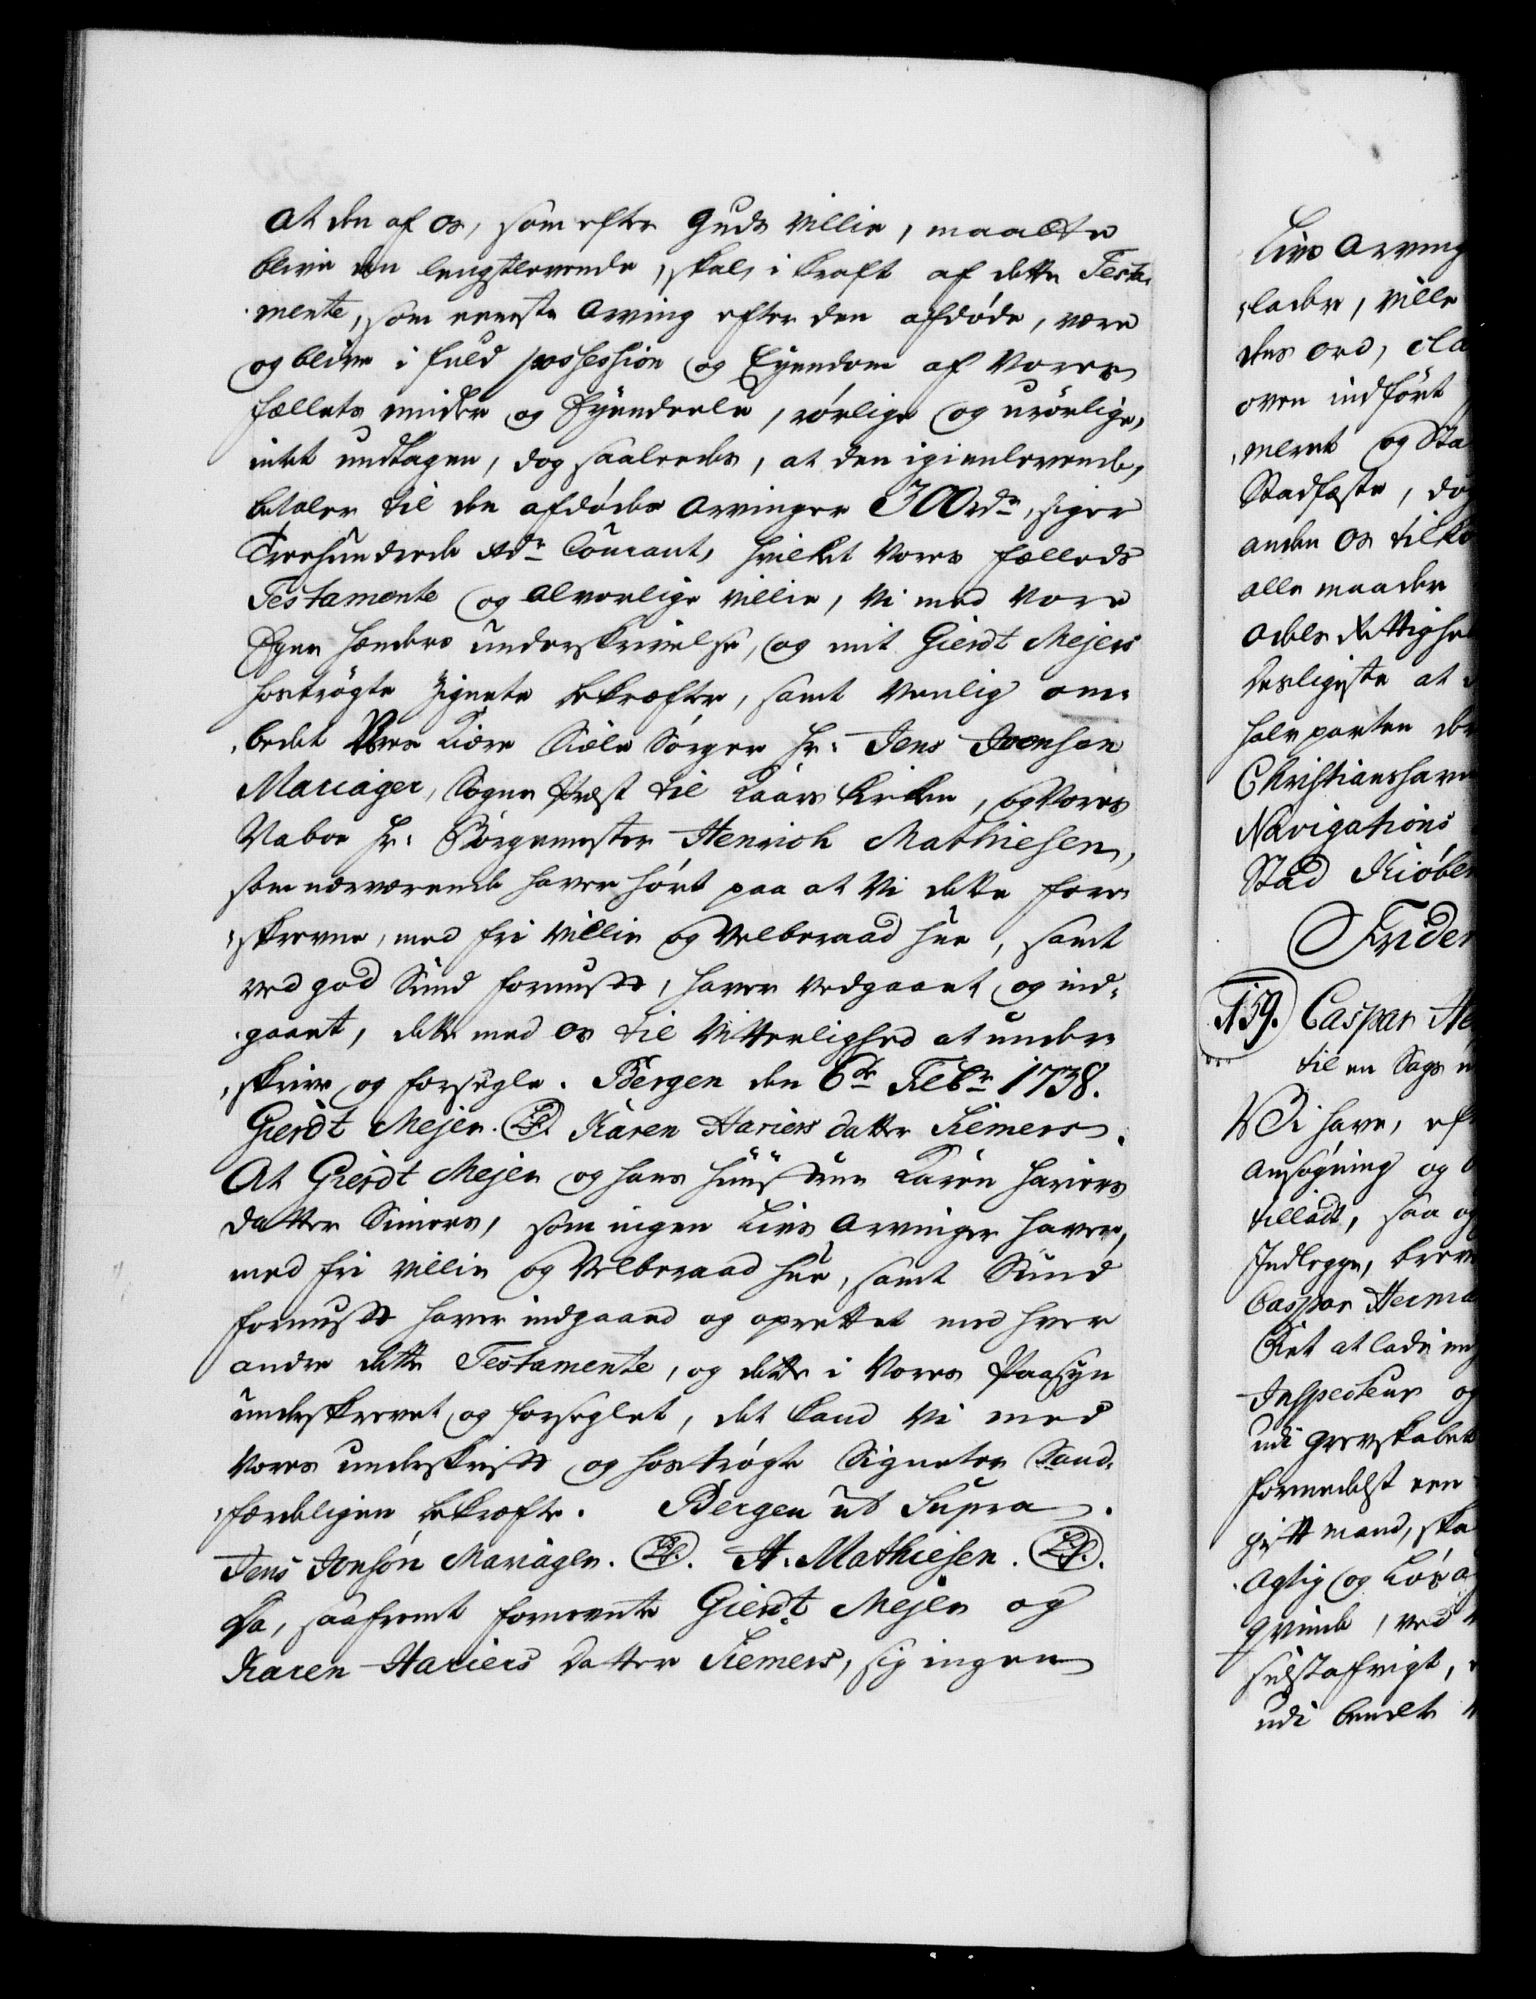 at den af os, som efter Guds villie, maatte
blive den lengstlevende, skal i kraft af dette Testa-
mente, som eeneste Arving efter den afdøde, være
og blive i fuld possession og Eyendom af Vores
fælleds midler og Eyendeele, rørlige og urørlige,
intet undtagen, dog saaledes, at den igienlevende,
betaler til den afdødes Arvinger 300 rdr, siger
Treehundrede rdr Courant, hvilket vores fælleds
Testamente og alvorlige villie, Vi med Vore
Egne hænders underskrivelse, og mit Gierdt Mejers
hostrøgte Zignete bekræfter, samt venlig om-
bedet Vores kiære Siæle Sørger Hr: Jens Joensen
Mariager, Sogne Præst til Kaars Kirken, og Vores
Naboe Hr: Borgemester Henrich Mathiesen,
som nærværende haver hørt paa at Vi dette fore-
skrevne, med fri villie og velberaad hue, samt
ved god Sund fornuft, haver vedgaaet og ind-
gaaet, dette med os til Vitterlighed at under-
skrive og forsegle. Bergen den 6de Febr 1738.
Gierdt Mejer. (L.S.) Karen Hariers datter Siemers.
At Gierdt Mejer og hans Huustrue Karen Hariers
datter Simers, som ingen Livs Arvinger haver,
med fri villie og velberaad hue, samt Sund
fornuft haver indgaaed og oprettet med hver
andre dette Testamente, og dette i Vores Paasyn
underskrevet og forseglet, det kand Vi med
Vores underskrift og hostrøgte Signeter Sand-
færdeligen bekræfte. Bergen ut Supra.
Jens Jonsøn Mariager. (L.S.). H. Mathiesen. (L.S.).
Da, saafremt fornevnte Gierdt Mejer og
Karen Hariers datter Siemers, sig ingen
Livs Arving
lader, ville
des ord,
oven indført
ment og Sta
Stadfæste, dog
anden os tilko
alle maader
Adels Rettighed
desligeste at
halvparten der
Christianshavn
Navigations
Stad Kiøben
Frider
159. Caspar He
til en Sags
Vi have, eft
Ansøgning og
tilladt, saa og
Indlegge, breve
Caspar Herma
Ret at lade
Inspecteur og
udi Grevskabet
formedelst een
gift mand, ska
agtig og
Qvinde, ved
udi